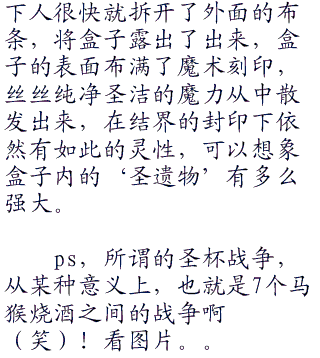 下人很快就拆开了外面的布
条，将盒子露出了出来，盒
子的表面布满了魔术刻印，
丝丝纯净圣洁的魔力从中散
发出来，在结界的封印下依
然有如此的灵性，可以想象
盒子内的‘圣遗物’有多么
强大。
ps，所谓的圣杯战争，
从某种意义上，也就是7个马
猴烧酒之间的战争啊
（笑）！看图片。。